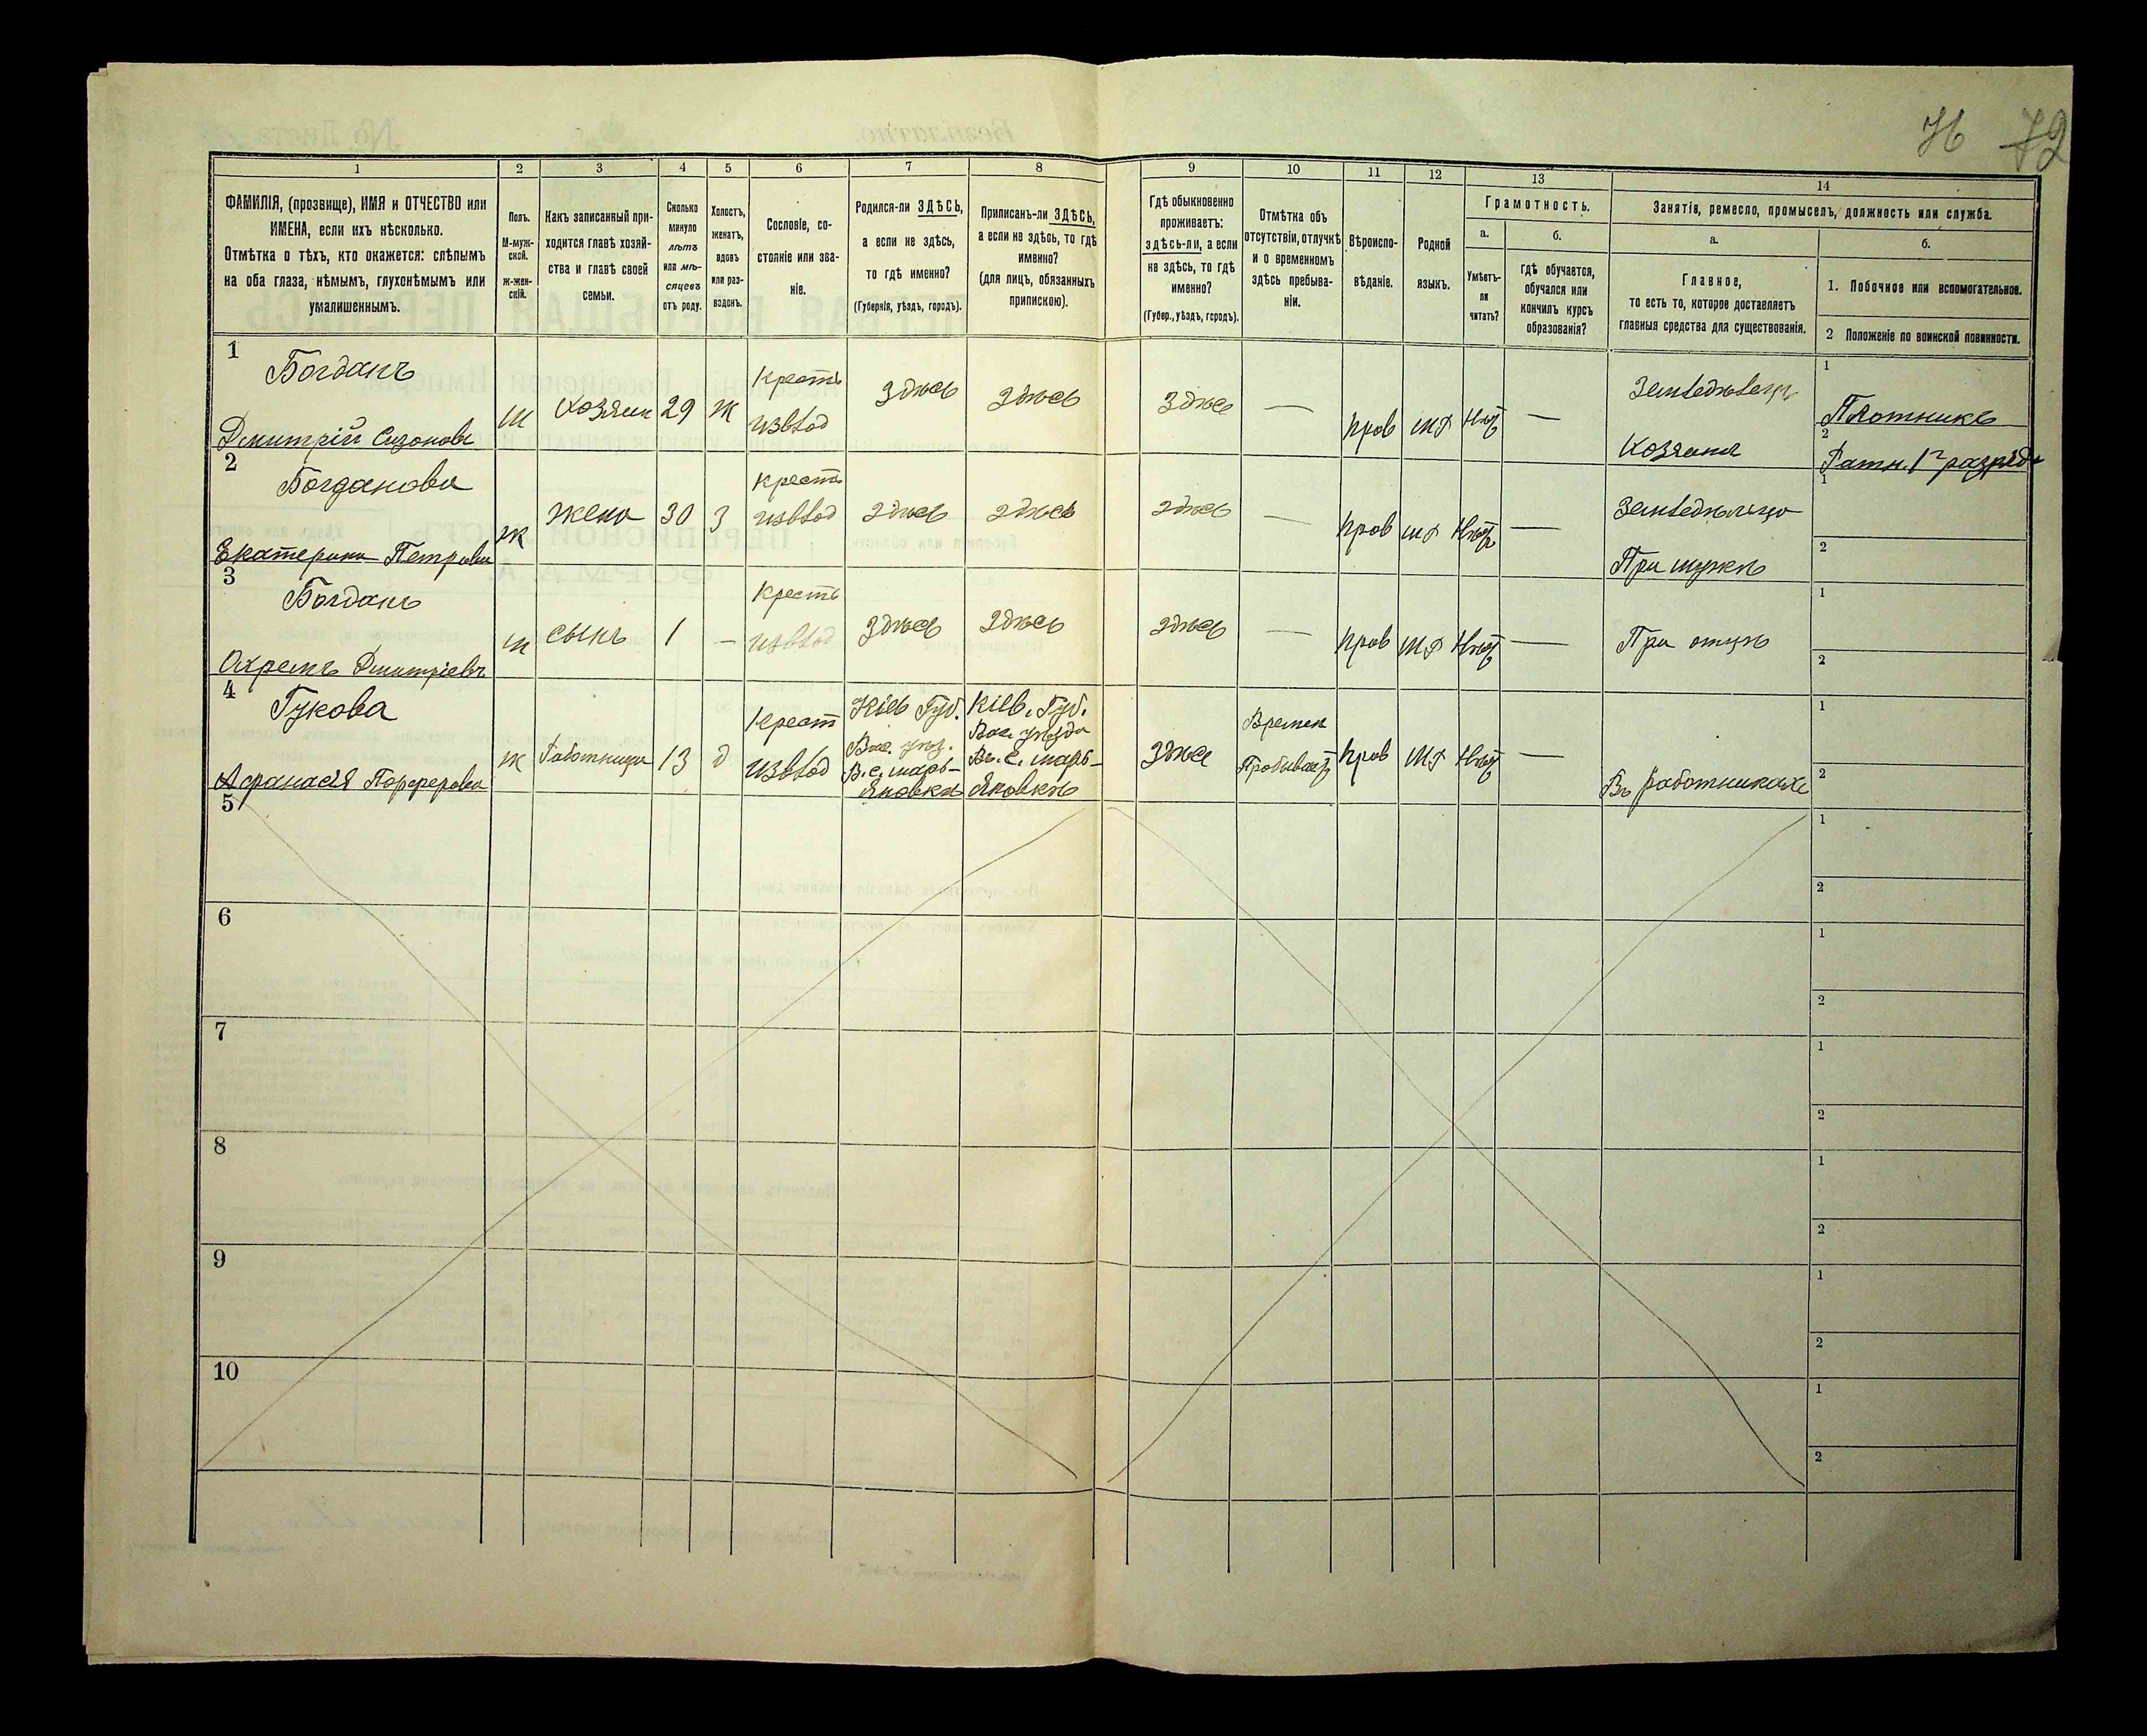 76 72
1 2 3 4 5 6 7 8 9 10 11 12 13 14
ФАМИЛІЯ, (прозвище), ИМЯ и ОТЧЕСТВО или
ИМЕНА, если ихъ нѣсколько.
Отмѣтка о тѣхъ, кто окажется: слѣпымъ
на оба глаза, нѣмымъ, глухонѣмымъ или
умалишеннымъ.
Полъ.
М-муж-
ской.
Ж-жен-
скій.
Какъ записанный при-
ходится главѣ хозяй-
ства и главѣ своей
семьи.
Сколько
минуло
лѣтъ
или мѣ-
сяцевъ
отъ роду.
Холостъ,
женатъ,
вдовъ
или раз-
веденъ.
Сословіе, со-
стояніе или зва-
ніе.
Родился-ли ЗДѢСЬ,
а если не здѣсь,
то гдѣ именно?
(Губернія, уѣздъ, городъ).
Приписанъ-ли ЗДѢСЬ,
а если не здѣсь, то гдѣ
именно?
(для лицъ, обязанныхъ
припискою).
Гдѣ обыкновенно
проживаетъ:
здѣсь-ли, а если
не здѣсь, то гдѣ
именно?
(Губер., уѣздъ, городъ).
Отмѣтка объ
отсутствіи, отлучкѣ
и о временномъ
здѣсь пребыва-
ніи.
Вѣроиспо-
вѣданіе.
Родной
языкъ.
Грамотность.
а.
Умѣетъ-
ли
читать?
б.
Гдѣ обучается,
обучался или
кончилъ курсъ
образованія?
Занятія, ремесло, промыселъ, должность или служба.
а.
Главное,
то есть то, которое доставляетъ
главныя средства для существованія.
б.
1. Побочное или вспомогательное.
2 Положеніе по воинской повинности.
1
Богданъ
Дмитрій Сизоновъ
м Хозяин 29 ж
Крестъ
изъ влад
здѣсь здѣсь здѣсь — прав мл Нѣтъ —
Земледѣлецъ
Хозяинъ
1
Плотникъ
2
Ратн. 1го разряда
2
Богданова
Екатерина Петрова
ж жена 30 З
Крестъ
изъ влад
здѣсь здѣсь здѣсь — прав мл Нѣтъ —
Земледѣлица
При мужѣ
1
2
3
Богданъ
Охремъ Дмитріевъ
м сынъ 1 —
Крестъ
изъ влад
здѣсь здѣсь здѣсь — прав мл Нѣтъ —
При отцѣ
1
2
4
Гукова
Афанасія Порферова
ж Работница 13 д
Крест
изъ влад
Кіев Губ.
Вас. уѣз.
В. с. Марь-
яновкѣ
Кіев. Губ.
Вас. уѣзда
Въ с. Марь-
яновкѣ
здѣсь
Времен
Пробывает
прав мл Нѣтъ —
Въ работникахъ
1
2
5
1
2
6
1
2
7
1
2
8
1
2
9
1
2
10
1
2